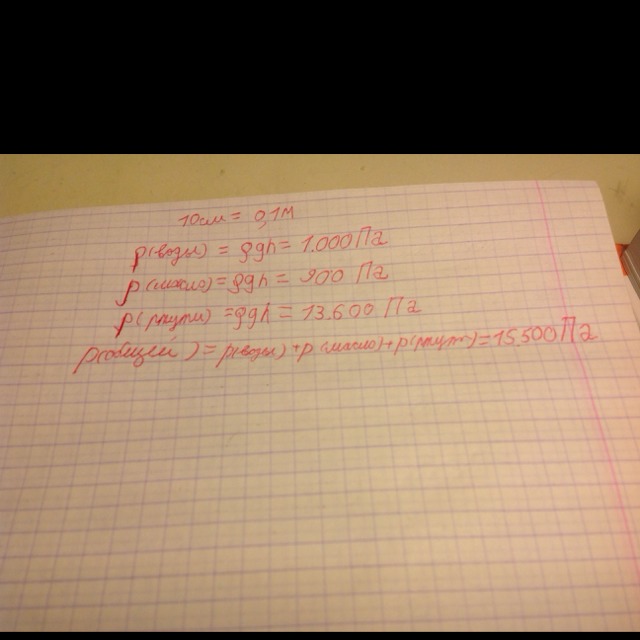 10см = 0,1м
p(воды) = ρgh = 1.000 Па
p(масло) = ρgh = 900 Па
p(ртути) = ρgh = 13.600 Па
p(общей) = p(воды) + p(масло) + p(ртути) = 15.500 Па